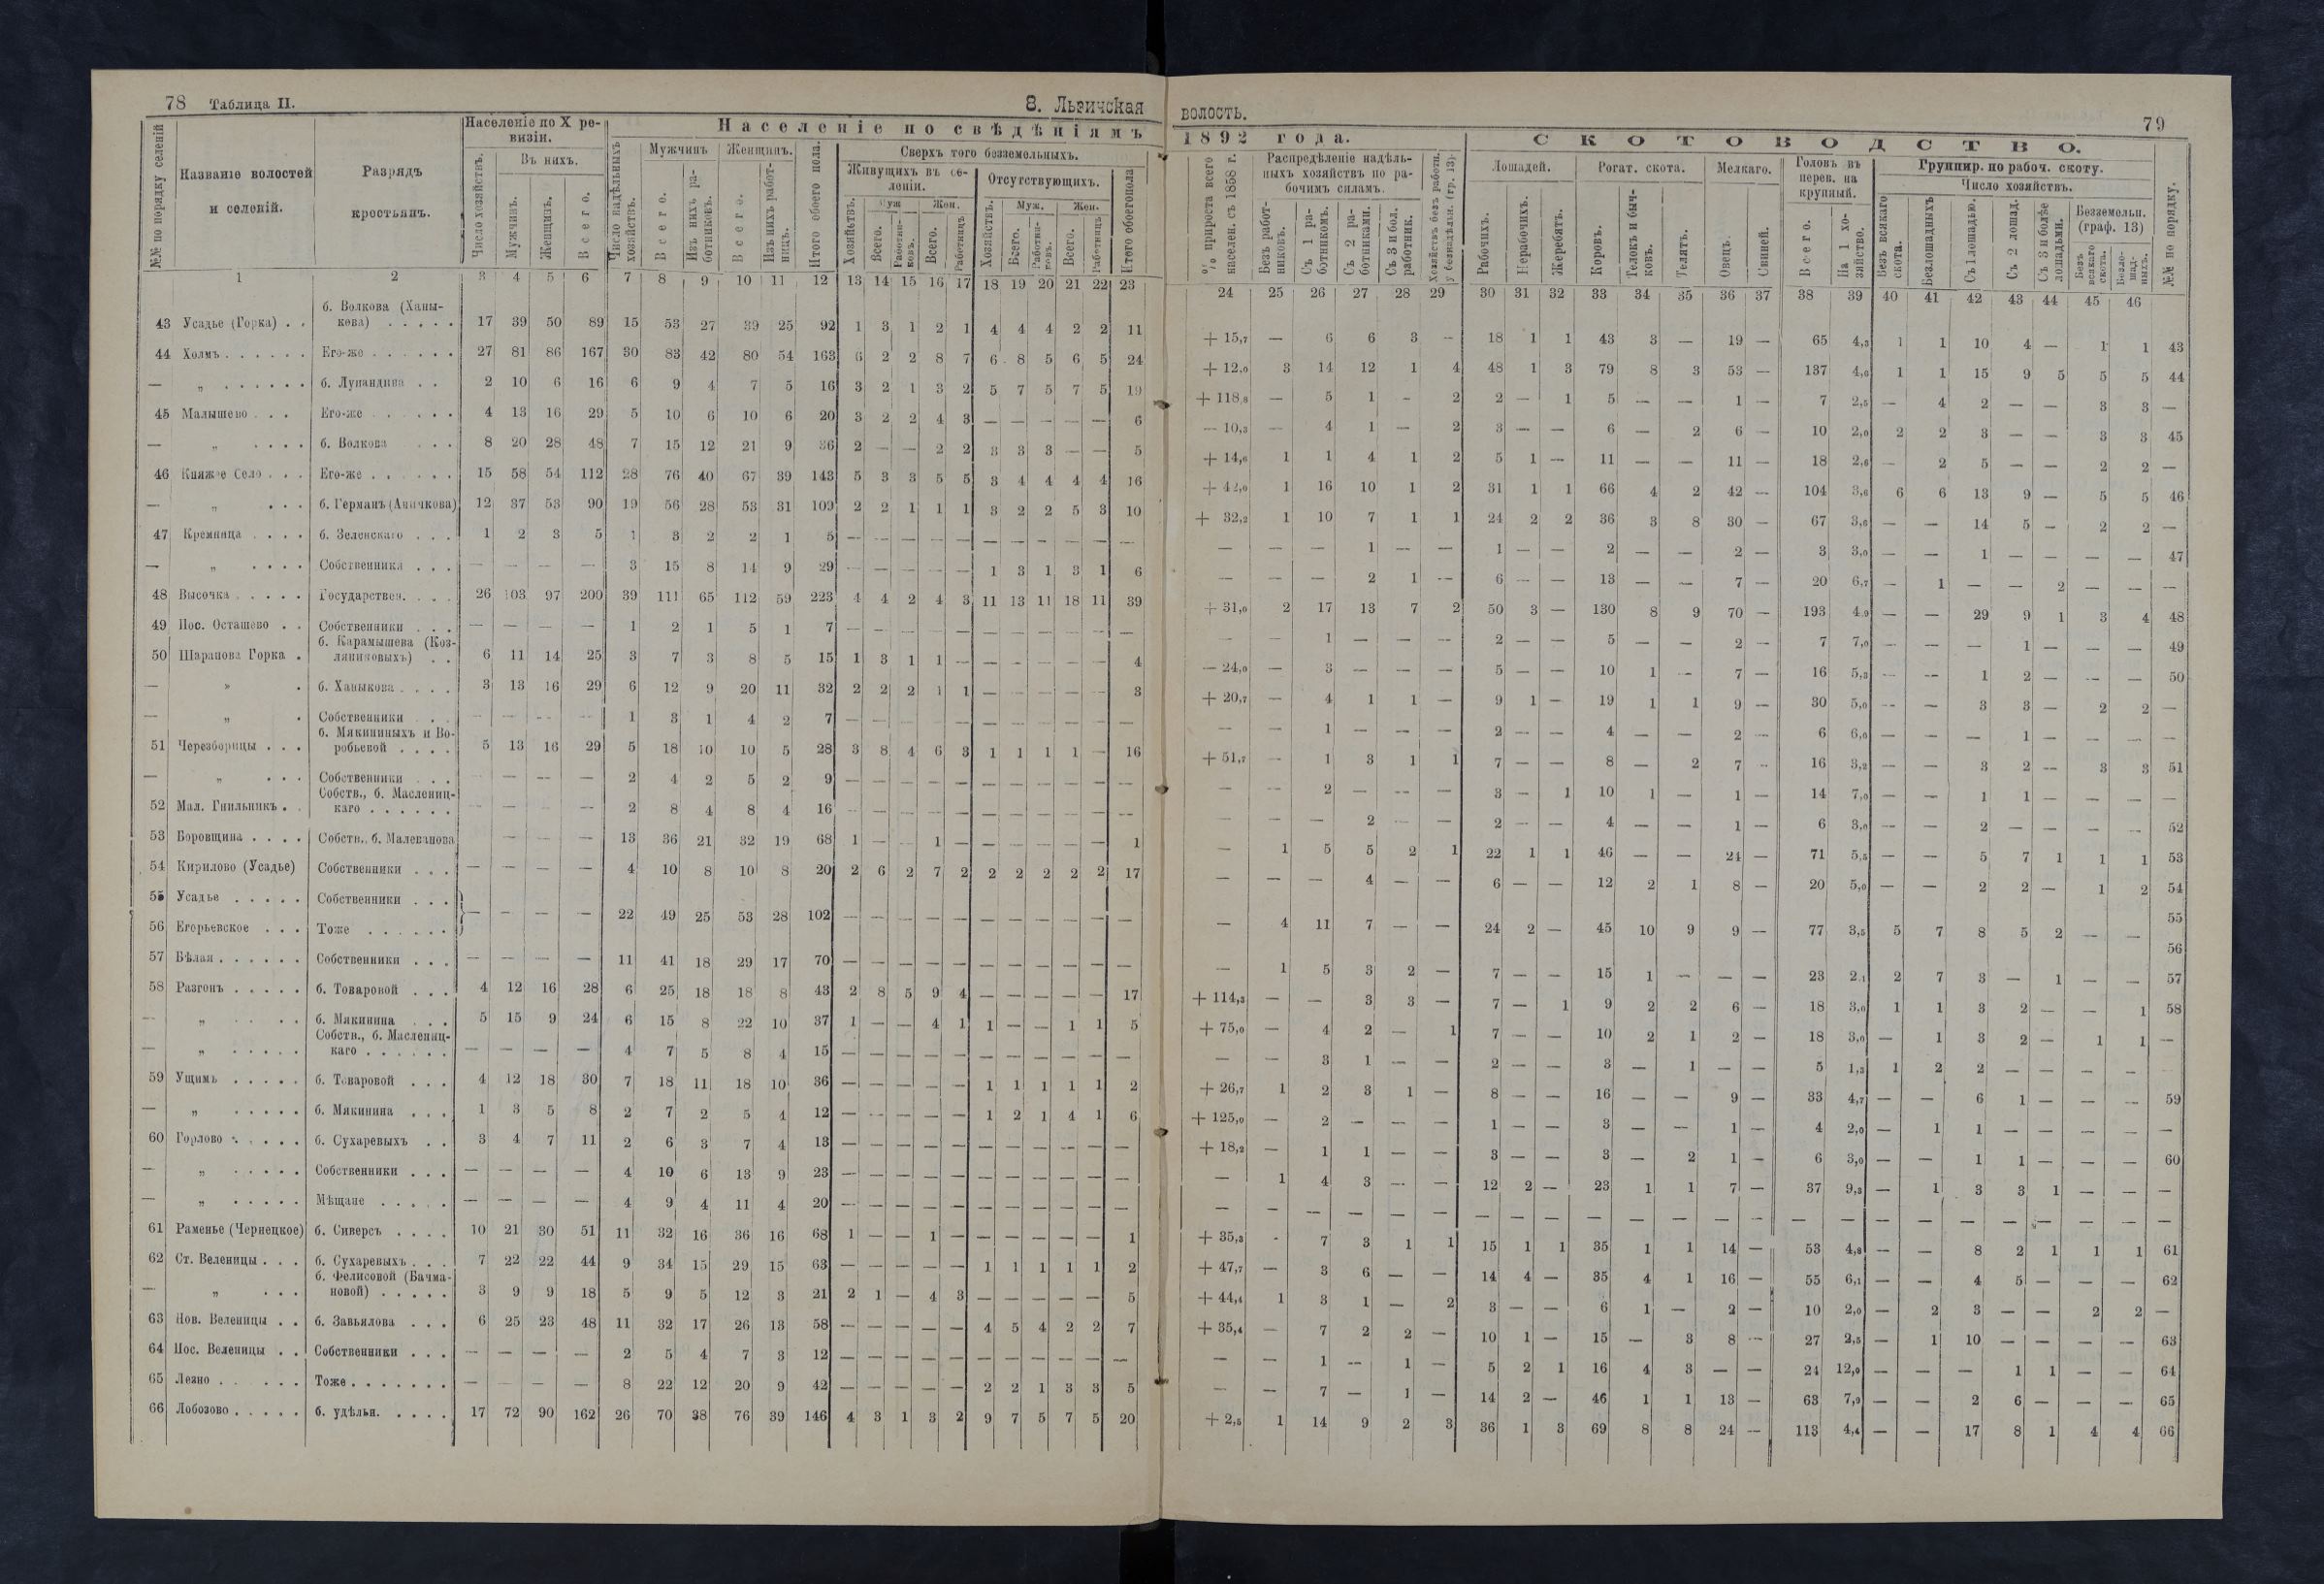 78 Таблица II.
8. Льзичская
волость.
79
№№ по порядку селеній
Названіе волостей и селеній.
Разрядъ крестьянъ.
Населеніе по X ревизіи.
Число хозяйствъ.
Въ нихъ.
Мужчинъ.
Женщинъ.
Всего.
Населеніе по свѣдѣніямъ
1892 года.
Число надѣльныхъ хозяйствъ.
Мужчинъ
Всего.
Изъ нихъ работниковъ.
Женщинъ.
Всего.
Изъ нихъ работницъ.
Итого обоего пола.
Сверхъ того безземельныхъ.
Живущихъ въ селеніи.
Хозяйствъ.
Муж
Всего.
Работниковъ.
Жен.
Всего.
Работницъ
Отсутствующихъ.
Хозяйствъ.
Муж.
Всего.
Работниковъ.
Жен.
Всего.
Работницъ
Итого обоего пола
% прироста всего населен. съ 1858 г.
Распредѣленіе надѣльныхъ хозяйствъ по рабочимъ силамъ.
Безъ работниковъ.
Съ 1 работникомъ.
Съ 2 работниками.
Съ 3 и бол. работник.
Хозяйствъ безъ работн. у безнадѣльн. (гр. 13).
СКОТОВОДСТВО.
Лошадей.
Рабочихъ.
Нерабочихъ.
Жеребятъ.
Рогат. скота.
Коровъ.
Телокъ и бычковъ.
Телятъ.
Мелкаго.
Овецъ.
Свиней.
Головъ въ перев. на крупный.
Всего.
На 1 хозяйство.
Группир. по рабоч. скоту.
Число хозяйствъ.
Безъ всякаго скота.
Безлошадныхъ
Съ 1 лошадью.
Съ 2 лошад.
Съ 3 и болѣе лошадьми.
Безземельн. (граф. 13)
Безъ всякаго скота.
Безлошадныхъ.
№№ по порядку.
1 2 3 4 5 6 7 8 9 10 11 12 13 14 15 16 17 18 19 20 21 22 23 24 25 26 27 28 29 30 31 32 33 34 35 36 37 38 39 40 41 42 43 44 45 46
43 Усадье (Горка) . . б. Волкова (Ханыкова) 17 39 50 89 15 53 27 39 25 92 1 3 1 2 1 4 4 4 2 2 11 + 15,7 — 6 6 3 — 18 1 1 43 3 — 19 — 65 4,3 1 1 10 4 — 1 1 43
44 Холмъ Его-же 27 81 86 167 30 83 42 80 54 163 6 2 2 8 7 6 8 5 6 5 24 + 12,0 3 14 12 1 4 48 1 3 79 8 3 53 — 137 4,6 1 1 15 9 5 5 5 44
— „ б. Лупандина 2 10 6 16 6 9 4 7 5 16 3 2 1 3 2 5 7 5 7 5 19 + 118,8 — 5 1 - 2 2 — 1 5 — — 1 — 7 2,5 — 4 2 — — 3 3 —
45 Малышево Его-же 4 13 16 29 5 10 6 10 6 20 3 2 2 4 3 — — — — — 6 — 10,3 — 4 1 — 2 3 — — 6 — 2 6 — 10 2,0 2 2 3 — — 3 3 45
— „ б. Волкова 8 20 28 48 7 15 12 21 9 36 2 — — 2 2 3 3 3 — — 5 + 14,6 1 1 4 1 2 5 1 — 11 — — 11 — 18 2,6 — 2 5 — — 2 2 —
46 Княжее Село Его-же 15 58 54 112 28 76 40 67 39 143 5 3 3 5 5 3 4 4 4 4 16 + 42,0 1 16 10 1 2 31 1 1 66 4 2 42 — 104 3,6 6 6 13 9 — 5 5 46
— „ б. Германъ (Аничкова) 12 37 53 90 19 56 28 53 31 109 2 2 1 1 1 3 2 2 5 3 10 + 32,2 1 10 7 1 1 24 2 2 36 3 8 30 — 67 3,6 — — 14 5 — 2 2 —
47 Кремница б. Зеленскаго 1 2 3 5 1 3 2 2 1 5 — — — — — — — — — — — — — — 1 — — 1 — — 2 — — 2 — 3 3,0 — — 1 — — — — 47
— „ Собственники — — — — 3 15 8 14 9 29 — — — — — 1 3 1 3 1 6 — — — 2 1 — 6 — — 13 — — 7 — 20 6,7 — 1 — — 2 — — —
48 Высочка Государствен. 26 103 97 200 39 111 65 112 59 223 4 4 2 4 3 11 13 11 18 11 39 + 31,0 2 17 13 7 2 50 3 — 130 8 9 70 — 193 4,9 — — 29 9 1 3 4 48
49 Пос. Осташево Собственники — — — — 1 2 1 5 1 7 — — — — — — — — — — — — — 1 — — — 2 — — 5 — — 2 — 7 7,0 — — — 1 — — — 49
50 Шарапова Горка б. Карамышева (Козляниновыхъ) 6 11 14 25 3 7 3 8 5 15 1 3 1 1 — — — — — — 4 — 24,0 — 3 — — — 5 — — 10 1 — 7 — 16 5,3 — — 1 2 — — — 50
— „ б. Ханыкова 3 13 16 29 6 12 9 20 11 32 2 2 2 1 1 — — — — — 3 + 20,7 — 4 1 1 — 9 1 — 19 1 1 9 — 30 5,0 — — 3 3 — 2 2 —
— „ Собственники — — — — 1 3 1 4 2 7 — — — — — — — — — — — — — 1 — — — 2 — — 4 — — 2 — 6 6,0 — — — 1 — — — —
51 Черезборицы б. Мякининыхъ и Воробьевой 5 13 16 29 5 18 10 10 5 28 3 8 4 6 3 1 1 1 1 — 16 + 51,7 — 1 3 1 1 7 — — 8 — 2 7 — 16 3,2 — — 3 2 — 3 3 51
— „ Собственники — — — — 2 4 2 5 2 9 — — — — — — — — — — — — — 2 — — — 3 — 1 10 1 — 1 — 14 7,0 — — 1 1 — — — —
52 Мал. Гнильникъ Собств., б. Маслениц- каго — — — — 2 8 4 8 4 16 — — — — — — — — — — — — — — 2 — — 2 — — 4 — — 1 — 6 3,0 — — 2 — — — — 52
53 Боровщина Собств., б. Малеванова — — — 13 36 21 32 19 68 1 — — 1 — — — — — — 1 — 1 5 5 2 1 22 1 1 46 — — 24 — 71 5,5 — — 5 7 1 1 1 53
54 Кирилово (Усадье) Собственники — — — — 4 10 8 10 8 20 2 6 2 7 2 2 2 2 2 2 17 — — — 4 — — 6 — — 12 2 1 8 — 20 5,0 — — 2 2 — 1 2 54
55 Усадье Собственники 55
— — — — 22 49 25 53 28 102 — — — — — — — — — — — — 4 11 7 — — 24 2 — 45 10 9 9 — 77 3,5 5 7 8 5 2 — —
56 Егорьевское Тоже 56
57 Бѣлая Собственники — — — — 11 41 18 29 17 70 — — — — — — — — — — — — 1 5 3 2 — 7 — — 15 1 — — — 23 2,1 2 7 3 — 1 — — 57
58 Разгонъ б. Товаровой 4 12 16 28 6 25 18 18 8 43 2 8 5 9 4 — — — — — 17 + 114,3 — — 3 3 — 7 — 1 9 2 2 6 — 18 3,0 1 1 3 2 — — 1 58
— „ б. Мякинина 5 15 9 24 6 15 8 22 10 37 1 — — 4 1 1 — — 1 1 5 + 75,0 — 4 2 — 1 7 — — 10 2 1 2 — 18 3,0 — 1 3 2 — 1 1 —
— „ Собств., б. Маслениц- каго — — — — 4 7 5 8 4 15 — — — — — — — — — — — — — 3 1 — — 2 — — 3 — 1 — — 5 1,3 1 2 2 — — — —
59 Ущимь б. Товаровой 4 12 18 30 7 18 11 18 10 36 — — — — — 1 1 1 1 1 2 + 26,7 1 2 3 1 — 8 — — 16 — — 9 — 33 4,7 — — 6 1 — — — 59
— „ б. Мякинина 1 3 5 8 2 7 2 5 4 12 — — — — — 1 2 1 4 1 6 + 125,0 — 2 — — — 1 — — 3 — — 1 — 4 2,0 — 1 1 — — — — —
60 Горлово б. Сухаревыхъ 3 4 7 11 2 6 3 7 4 13 — — — — — — — — — — — + 18,2 — 1 1 — — 3 — — 3 — 2 1 — 6 3,0 — — 1 1 — — — 60
— „ Собственники — — — — 4 10 6 13 9 23 — — — — — — — — — — — — 1 4 3 — — 12 2 — 23 1 1 7 — 37 9,3 — 1 3 3 1 — — —
— „ Мѣщане — — — — 4 9 4 11 4 20 — — — — — — — — — — — — — — — — — — — — — — — — — — — — — — — — — — —
61 Раменье (Чернецкое) б. Сиверсъ 10 21 30 51 11 32 16 36 16 68 1 — — 1 — — — — — — 1 + 35,3 - 7 3 1 1 15 1 1 35 1 1 14 — 53 4,8 — — 8 2 1 1 1 61
62 Ст. Веленицы б. Сухаревыхъ 7 22 22 44 9 34 15 29 15 63 — — — — — 1 1 1 1 1 2 + 47,7 — 3 6 — — 14 4 — 35 4 1 16 — 55 6,1 — — 4 5 — — — 62
— „ б. Фелисовой (Бачмановой) 3 9 9 18 5 9 5 12 3 21 2 1 — 4 3 — — — — — 5 + 44,4 1 3 1 — 2 3 — — 6 1 — 2 — 10 2,0 — 2 3 — — 2 2 —
63 Нов. Веленицы б. Завьялова 6 25 23 48 11 32 17 26 13 58 — — — — — 4 5 4 2 2 7 + 35,4 — 7 2 2 — 10 1 — 15 — 3 8 — 27 2,5 — 1 10 — — — — 63
64 Пос. Веленицы Собственники — — — — 2 5 4 7 3 12 — — — — — — — — — — — — — 1 — 1 — 5 2 1 16 4 3 — — 24 12,0 — — — 1 1 — — 64
65 Лезно Тоже — — — — 8 22 12 20 9 42 — — — — — 2 2 1 3 3 5 — — 7 — 1 — 14 2 — 46 1 1 13 — 63 7,9 — — 2 6 — — — 65
66 Лобозово б. удѣльн. 17 72 90 162 26 70 38 76 39 146 4 3 1 3 2 9 7 5 7 5 20 + 2,5 1 14 9 2 3 36 1 3 69 8 8 24 — 113 4,4 — — 17 8 1 4 4 66